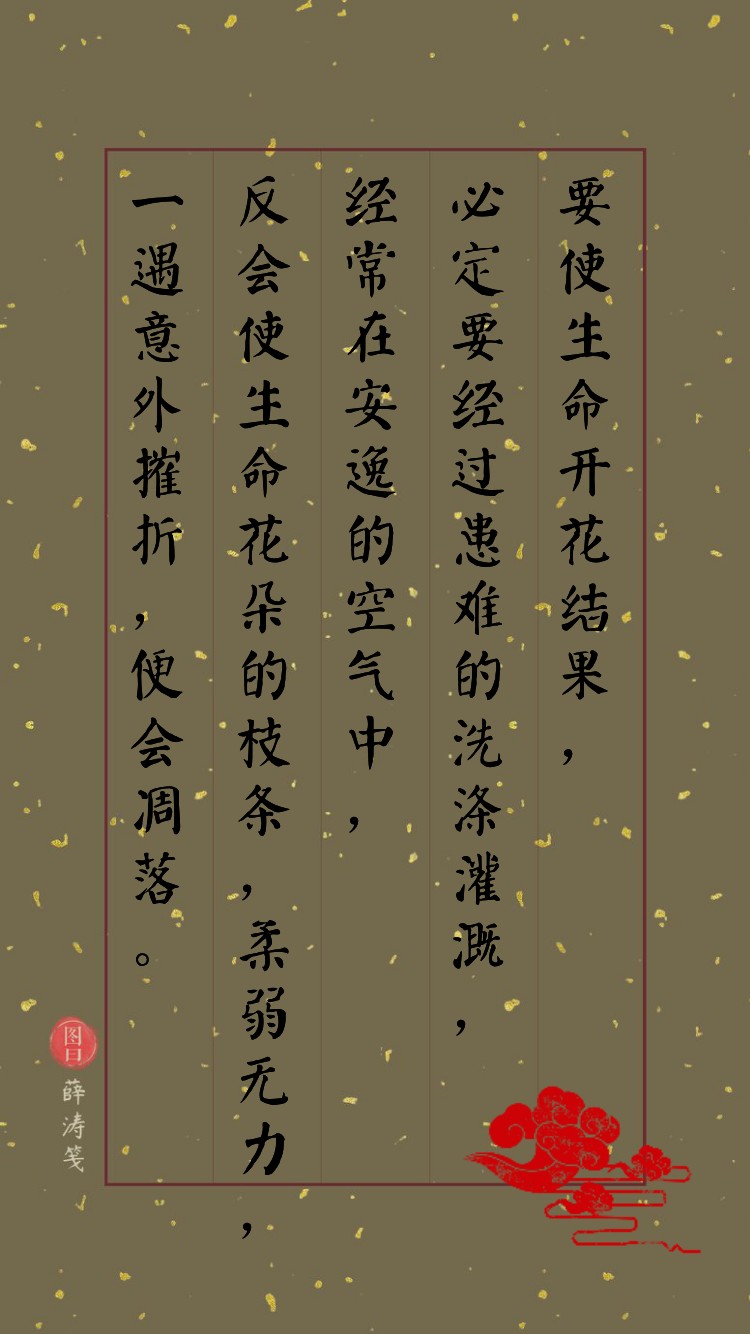 要使生命开花结果，
必定要经过患难的洗涤灌溉，
经常在安逸的空气中，
反会使生命花朵的枝条，柔弱无力，
一遇意外摧折，便会凋落。
图曰
薛涛笺